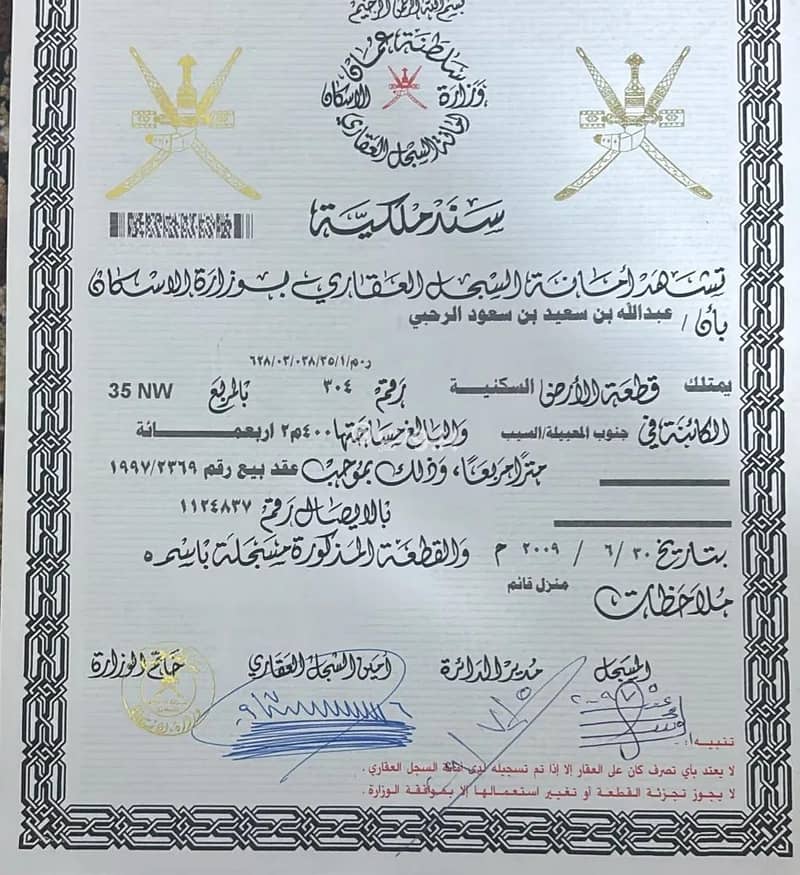 بسم الله الرحمن الرحيم
سلطنة عمان
وزارة الاسكان
أمانة السجل العقاري
سند ملكية
تشهد أمانة السجل العقاري بوزارة الاسكان
بأن / عبدالله بن سعيد بن سعود الرحبي
ر.م/٦٢٨/٠٣/٠٢٨/٣٥/١
يمتلك قطعة الأرض السكنية رقم ٣٠٤ بالمربع 35 NW
الكائنة في جنوب المعبيلة/السيب والبالغ مساحتها ٤٠٠م٢ اربعمائة
متراً مربعاً، وذلك بموجب عقد بيع رقم ١٩٩٧/٢٣٦٩
بالايصال رقم ١١٢٤٨٣٧
بتاريخ ٣٠ / ٦ / ٢٠٠٩ م والقطعة المذكورة مسجلة باسمه
ملاحظات منزل قائم
المسجل مدير الدائرة أمين السجل العقاري خاتم الوزارة
تنبيه :
لا يعتد بأي تصرف كان على العقار إلا إذا تم تسجيله لدى أمانة السجل العقاري .
لا يجوز تجزئة القطعة أو تغيير استعمالها إلا بموافقة الوزارة .